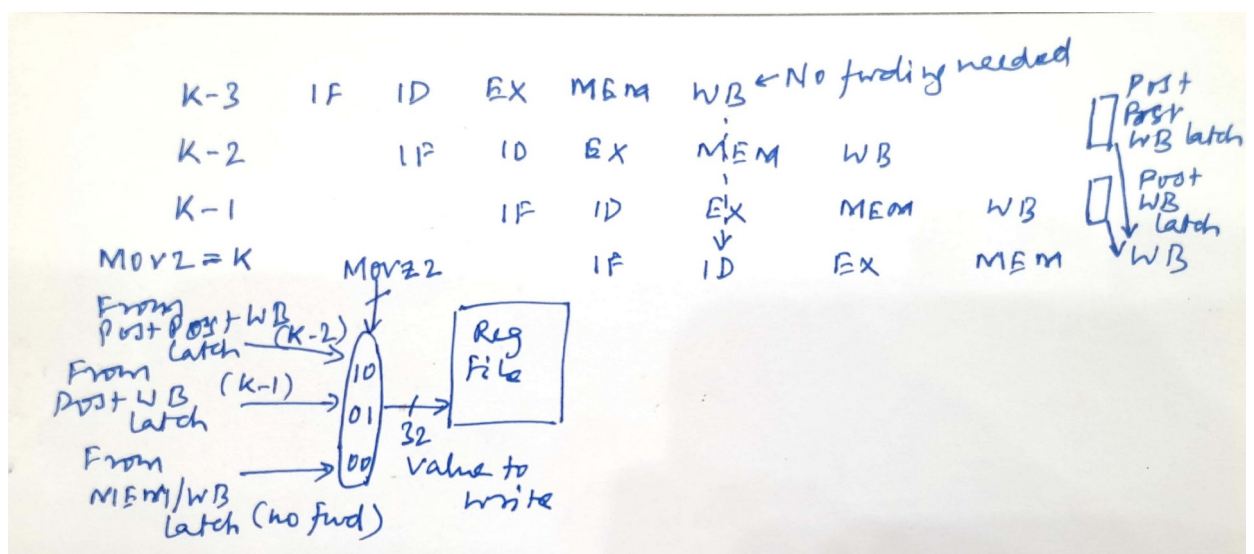 K-3 IF ID EX MEM WB ← No fwding needed
K-2 IF ID EX MEM WB
K-1 IF ID EX MEM WB
MOVZ = K IF ID EX MEM WB
Post
Post
WB latch
Post
WB
latch
MOVZ2
From
Post Post WB
latch (K-2)
From
Post WB (K-1)
latch
From
MEM/WB
latch (no fwd)
10
01
00
32
value to
write
Reg
File